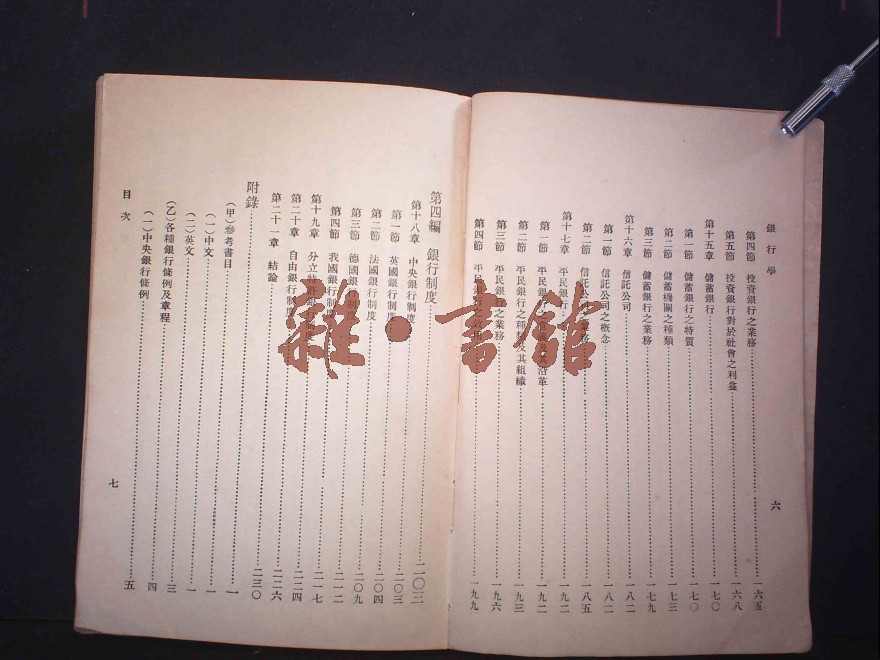 銀行學
第四節 投資銀行之業務 一六五
第五節 投資銀行對於社會之利益 一六八
第十五章 儲蓄銀行 一七〇
第一節 儲蓄銀行之特質 一七〇
第二節 儲蓄機關之種類 一七三
第三節 儲蓄銀行之業務 一七九
第十六章 信託公司 一八二
第一節 信託公司之概念 一八二
第二節 信託公司之業務 一八五
第十七章 平民銀行 一九二
第一節 平民銀行之 沿革 一九二
第二節 平民銀行之種類及其組織 一九三
第三節 平民銀行之業務 一九六
第四節 平民銀行之 一九九
六
第四編 銀行制度
第十八章 中央銀行制度 二〇三
第一節 英國銀行制度 二〇三
第二節 法國銀行制度 二〇四
第三節 德國銀行制度 二〇九
第四節 我國銀行制度 二一二
第十九章 分立特許銀行 二一七
第二十章 自由銀行制度 二二四
第二十一章 結論 二二六
附錄 二三〇
(甲)參考書目 一
(一)中文 一
(二)英文 一
(乙)各種銀行條例及章程 三
(一)中央銀行條例 四
目次 五
七
雜·書館